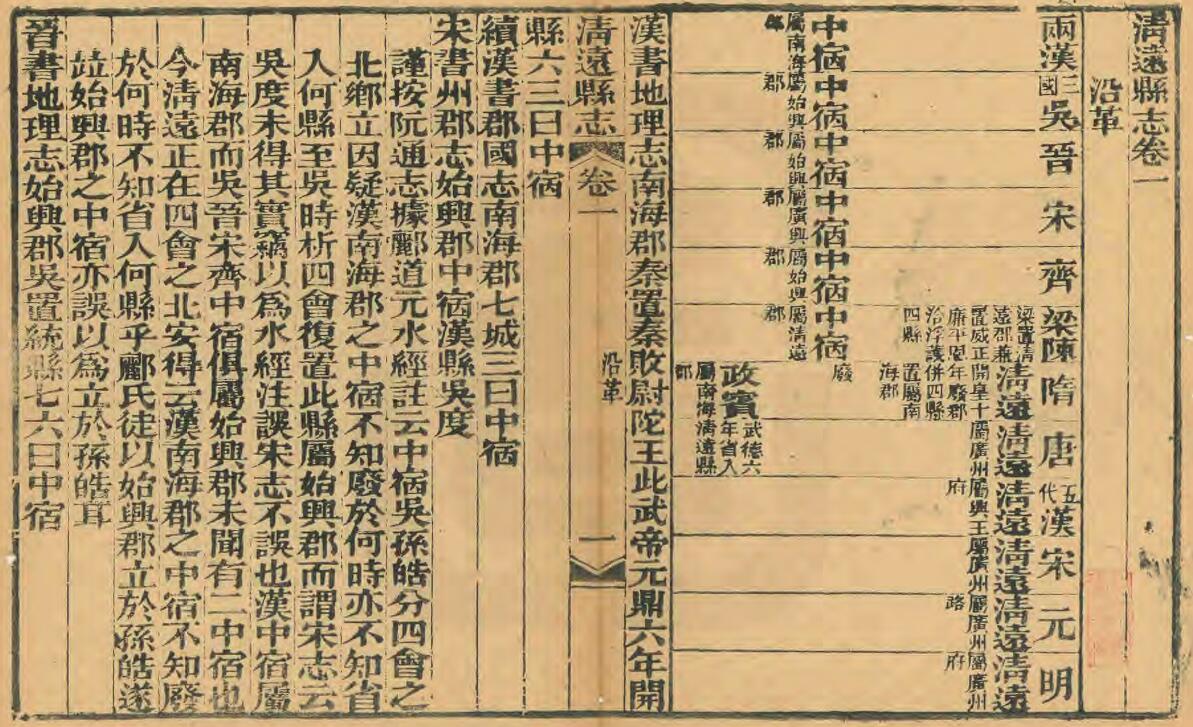 清遠縣志卷一
沿革
兩漢
三國吳
晉
宋
齊
梁陳
隋
唐
五代漢
宋
元
明
梁置清遠郡兼置威正廉平恩洽浮護四縣
清遠
開皇十年廢郡併四縣置屬南海郡
清遠
屬廣州
清遠
屬興王府
清遠
屬廣州
清遠
屬廣州路
清遠
屬廣州府
中宿
屬南海郡
中宿
屬始興郡
中宿
屬始興郡
中宿
屬廣興郡
中宿
屬始興郡
中宿
屬清遠郡
廢
政賓
屬南海郡
武德六年省入清遠縣
漢書地理志南海郡秦置秦敗尉陀王此武帝元鼎六年開
清遠縣志
卷一
沿革
一
縣六三曰中宿
續漢書郡國志南海郡七城三曰中宿
宋書州郡志始興郡中宿漢縣吳度
謹按阮通志據酈道元水經註云中宿吳孫皓分四會之
北鄉立因疑漢南海郡之中宿不知廢於何時亦不知省
入何縣至吳時析四會復置此縣屬始興郡而謂宋志云
吳度未得其實竊以為水經注誤宋志不誤也漢中宿屬
南海郡而吳晉宋齊中宿俱屬始興郡未聞有二中宿也
今清遠正在四會之北安得云漢南海郡之中宿不知廢
於何時不知省入何縣乎酈氏徒以始興郡立於孫皓遂
竝始興郡之中宿亦誤以為立於孫皓耳
晉書地理志始興郡吳置統縣七六曰中宿